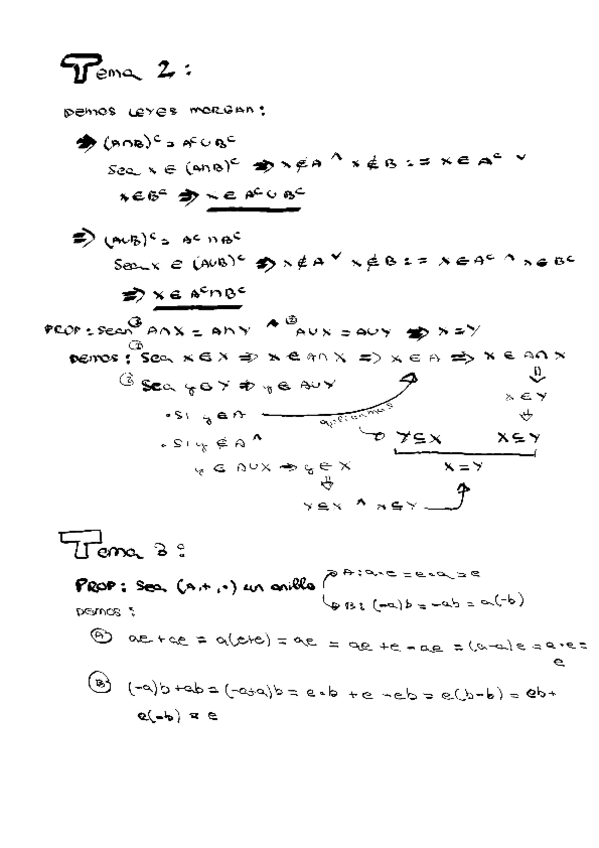 Tema 2:
Demos Leyes Morgan:
⇒ (A∩B)ᶜ = Aᶜ∪Bᶜ
Sea x ∈ (A∩B)ᶜ ⇒ x∉A ^ x∉B := x∈Aᶜ ∨
x∈Bᶜ ⇒ x∈Aᶜ∪Bᶜ
⇒ (A∪B)ᶜ = Aᶜ∩Bᶜ
Sea x ∈ (A∪B)ᶜ ⇒ x∉A ∨ x∉B := x∈Aᶜ ^ x∈Bᶜ
⇒ x∈Aᶜ∩Bᶜ
PROP: Sean A∩X = A∩Y ^ ② A∪X = A∪Y ⇒ X=Y
DEMOS: Sea x∈X ⇒ x∈A∪X ⇒ x∈A ⇒ x∈A∩X
⇓
② Sea y∈Y ⇒ y∈A∪Y
x∈Y
• Si y∈A
⇓
• Si y∉A ^
Y⊆X X⊆Y
y∈A∪X ⇒ y∈X
X=Y
⇓
Y⊆X ^ X⊆Y
Tema 3:
PROP: Sea (A,+,·) un anillo
A: a·e = e·a = e
B: (-a)b = -ab = a(-b)
Demos:
Ⓐ ae+ae = a(e+e) = ae = ae+e-ae = (a-a)e = a·e =
e
Ⓑ (-a)b+ab = (-a+a)b = e·b + e -eb = e(b-b) = eb+
e(-b) = e